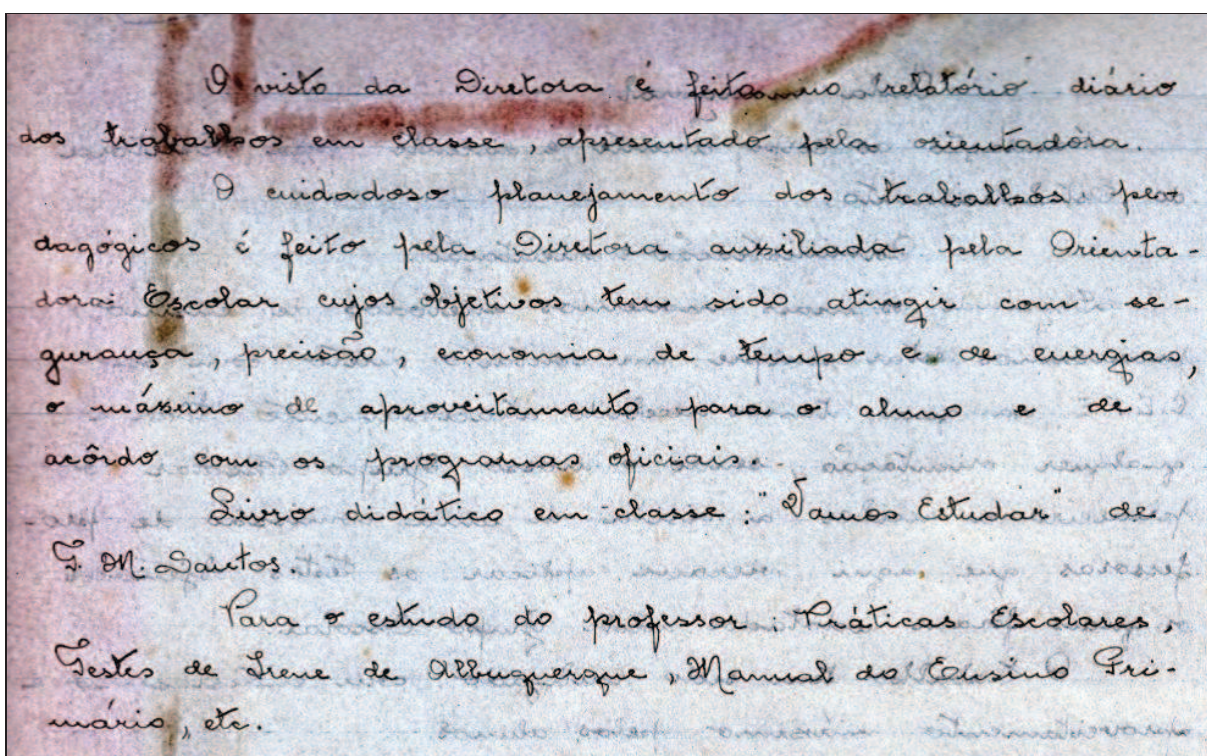 O visto da Diretora é feito num relatório diário
dos trabalhos em classe, apresentado pela orientadora.
O cuidadoso planejamento dos trabalhos pe-
dagógicos é feito pela Diretora auxiliada pela Orienta-
dora Escolar cujos objetivos tem sido atingir com se-
gurança, precisão, economia de tempo e de energias,
o máximo de aproveitamento para o aluno e de
acôrdo com os programas oficiais.
Livro didático em classe: "Vamos Estudar" de
T. M. Santos.
Para o estudo do professor: Práticas Escolares,
Testes de Irene de Albuquerque, Manual do Ensino Pri-
mário, etc.